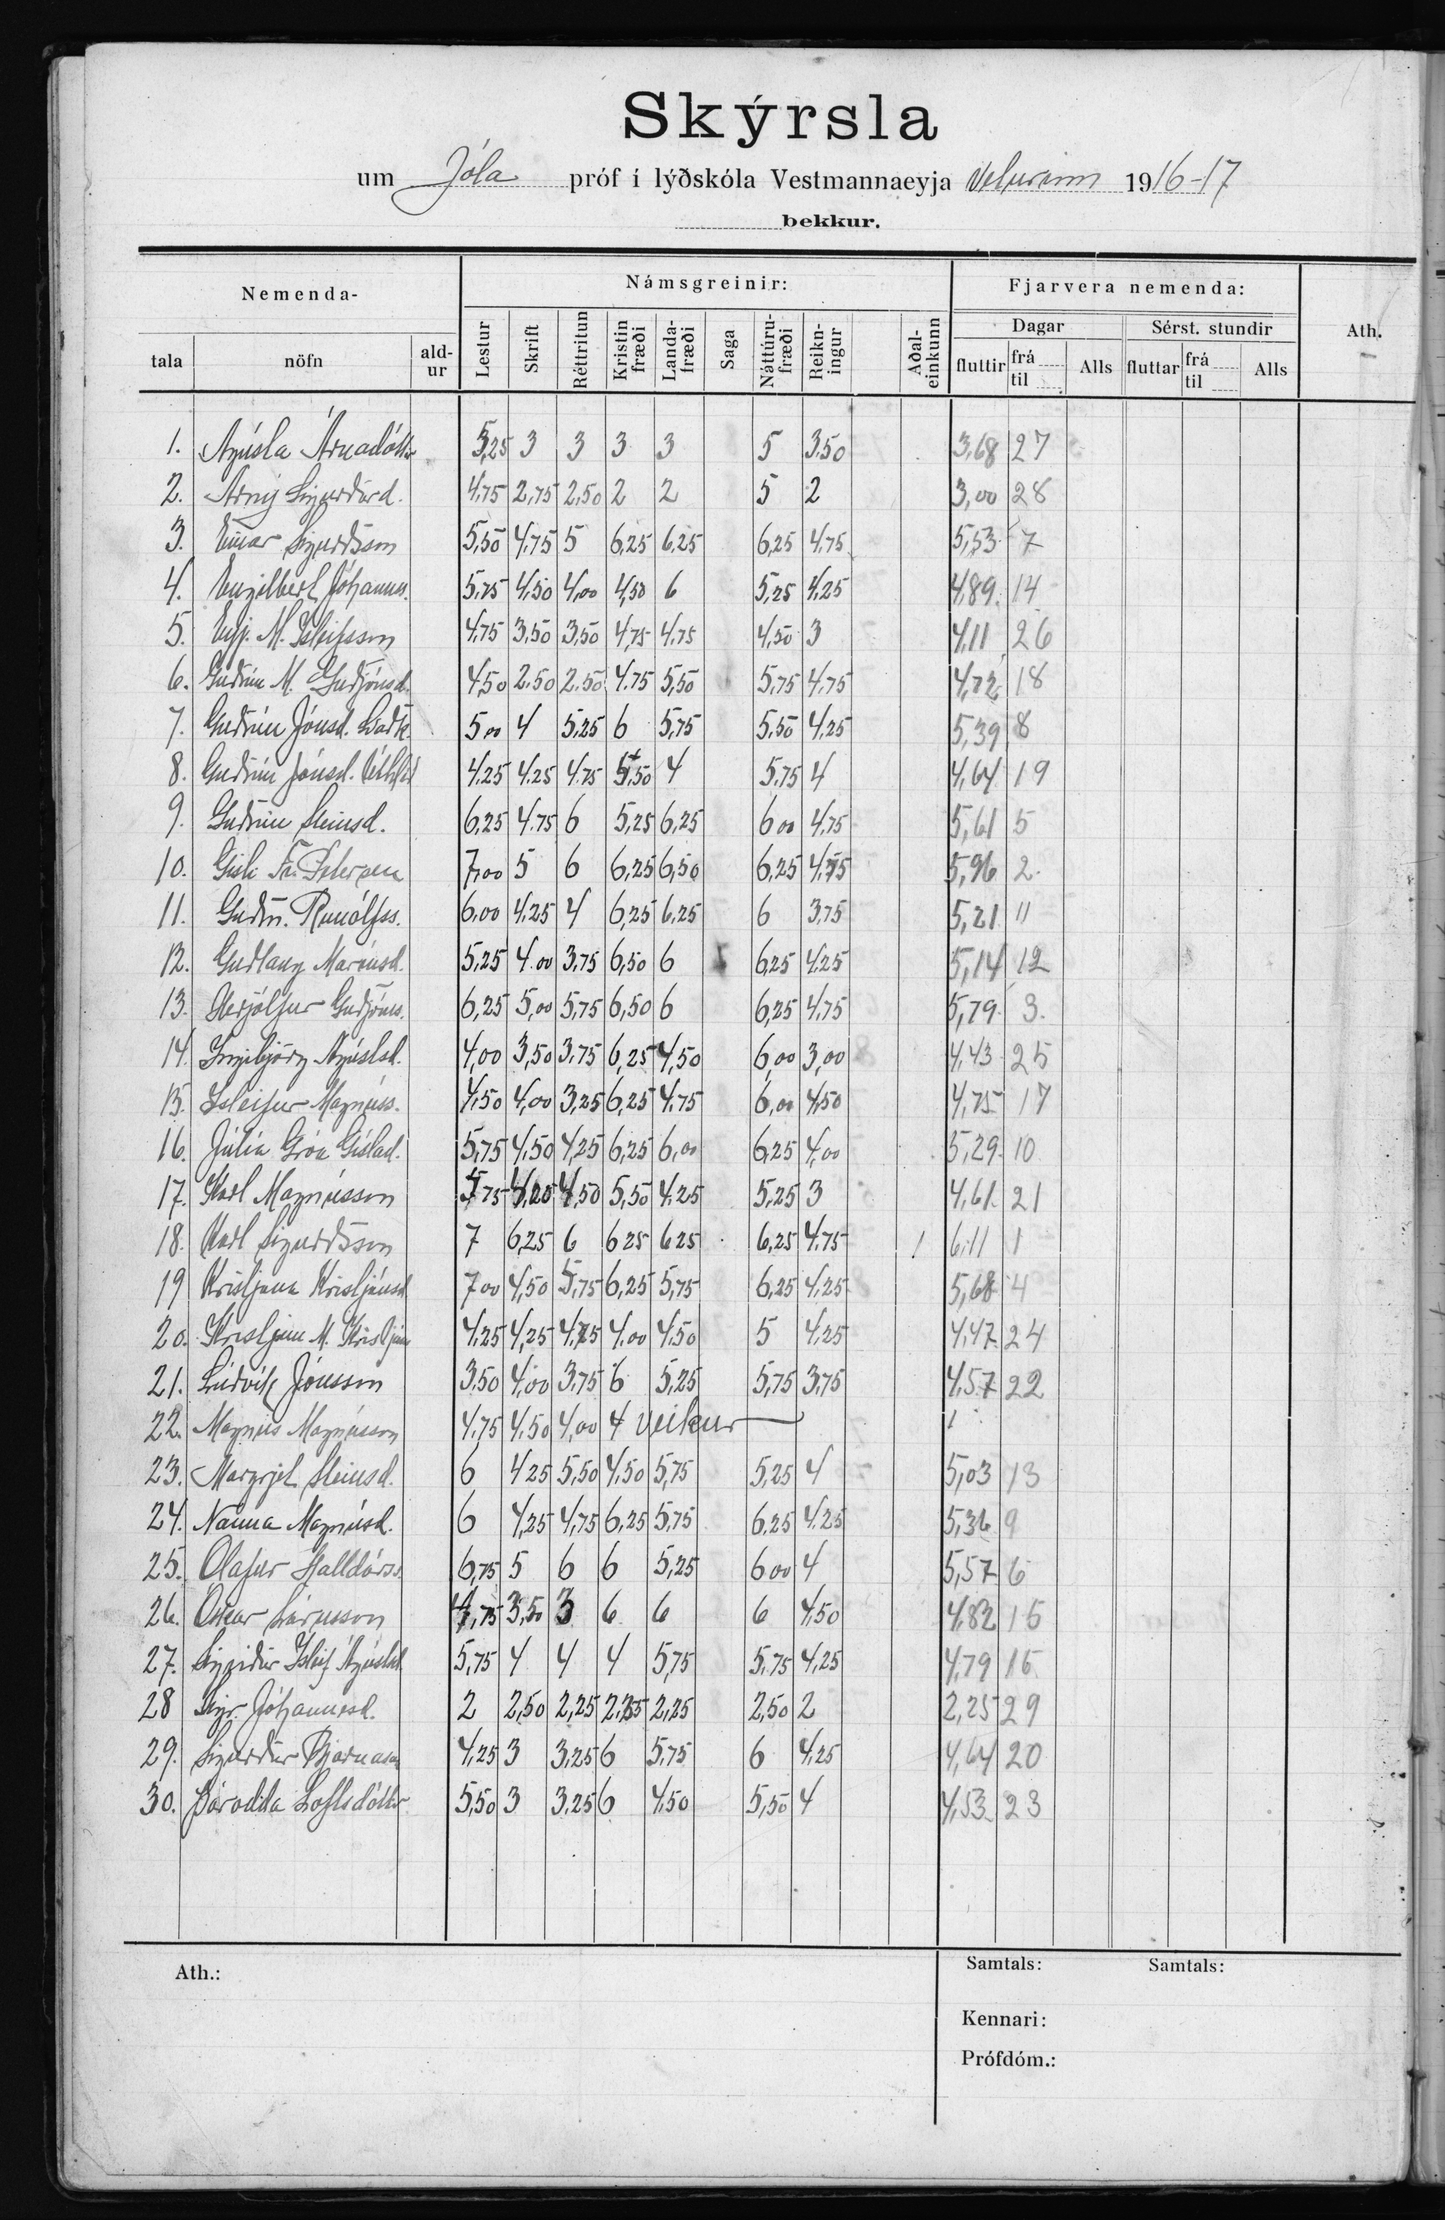 Skýrsla
um Jóla próf í lýðskóla Vestmannaeyja Veturinn 1916-17
bekkur.
Nemenda- Námsgreinir: Fjarvera nemenda: Ath.
Dagar Sérst. stundir
tala nöfn ald-ur Lestur Skrift Réttritun Kristin fræði Landa-fræði Saga Náttúru-fræði Reikn-ingur Aðal-einkunn fluttir frá til Alls fluttar frá til Alls
1. Ágústa Árnadóttir 5,25 3 3 3 3 5 3.50 3,68 27
2. Árný Sigurðard. 4,75 2,75 2,50 2 2 5 2 3,00 28
3. Einar Sigurðsson 5,50 4,75 5 6,25 6,25 6,25 4,75 5,53 7
4. Engilbert Jóhanns. 5,75 4,50 4,00 4,50 6 5,25 4,25 4,89 14
5. Eyj. M. Ísleifsson 4,75 3,50 3,50 4,75 4,75 4,50 3 4,11 26
6. Guðrún M. Guðjónsd. 4,50 2.50 2.50 4.75 5,50 5,75 4,75 4,72 18
7. Guðrún Jónsd. 5,00 4 5,25 6 5,75 5,50 4,25 5,39 8
8. Guðrún Jónsd. 4,25 4,25 4,75 5,50 4 5,75 4 4,64 19
9. Guðrún Steinsd. 6,25 4.75 6 5,25 6,25 6 00 4,75 5,61 5
10. Gísli Fr. Petersen 7,00 5 6 6,25 6,50 6,25 4,75 5,96 2
11. Guðm. Runólfss. 6,00 4,25 4 6,25 6,25 6 3,75 5,21 11
12. Guðlaug Maríusd. 5,25 4.00 3,75 6,50 6 6,25 4,25 5,14 12
13. Herjólfur Guðjóns. 6,25 5,00 5,75 6,50 6 6,25 4,75 5,79 3.
14. Ingibjörg Ágústsd. 4,00 3,50 3,75 6,25 4,50 6,00 3,00 4,43 25
15. Ísleifur Magnúss. 4,50 4,00 3,25 6,25 4,75 6,00 4,50 4,75 17
16. Júlía Gróa Gíslad. 5,75 4,50 4,25 6,25 6,00 6,25 4,00 5,29 10
17. Karl Magnússon 4,75 4,25 4,50 5,50 4,25 5,25 3 4,61 21
18. Karl Sigurðsson 7 6,25 6 6 25 6 25 6,25 4.75 6.11 1
19 Kristjana Kristjánsd 7 00 4,50 5,75 6,25 5,75 6,25 4,25 5,68 4
20. Kristján M. Kristjáns 4,25 4,25 4,75 4,00 4,50 5 4,25 4,47 24
21. Lúðvík Jónsson 3,50 4,00 3,75 6 5,25 5,75 3,75 4,57 22
22. Magnús Magnússon 4,75 4,50 4,00 4 veikur
23. Margrjet Steinsd. 6 4 25 5,50 4,50 5,75 5,25 4 5,03 13
24. Nanna Magnúsd. 6 4,25 4,75 6,25 5,75 6,25 4,25 5,36 9
25. Ólafur Halldórss. 6,75 5 6 6 5,25 6 00 4 5,57 6
26. Óskar Lárusson 4,75 3,50 3 6 6 6 4,50 4,82 15
27. Sigríður Ísleif Ágústsd. 5,75 4 4 4 5,75 5,75 4,25 4,79 16
28 Sigr. Jóhannesd. 2 2,50 2,25 2,25 2,25 2,50 2 2,25 29
29. Sigurður Bjarnason 4,25 3 3,25 6 5,75 6 4,25 4,64 20
30. Þórodda Loftsdóttir 5,50 3 3.25 6 4,50 5,50 4 4,53 23
Ath.: Samtals: Samtals:
Kennari:
Prófdóm.: